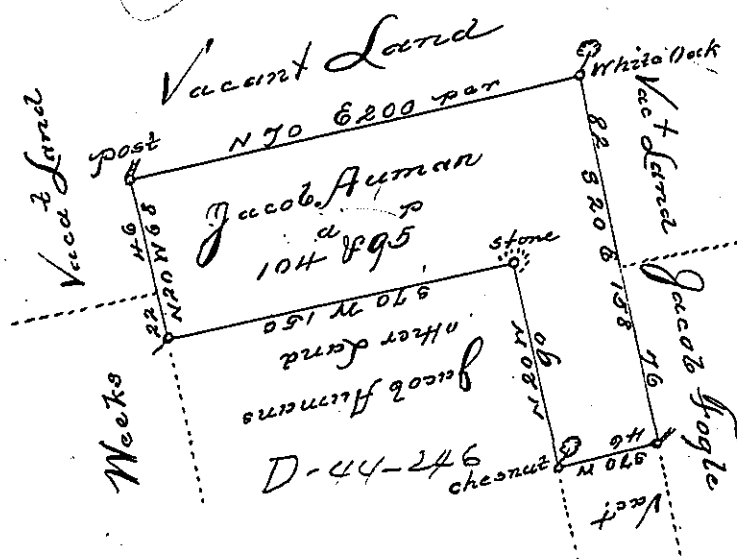 Vacant Land
White Oak
N 70 E 200 per
Post
Vacat Land
Vact Land
46
N 20 W 68
22
82
S 20 E 158
76
Jacob Auman
104 a & 95 p
Stone
S 70 W 150
Jacob Aumans
other Land
N 20 W
90
Jacob Fogle
Weeks
D-44-246
chesnut
S 70 W
46
Vact